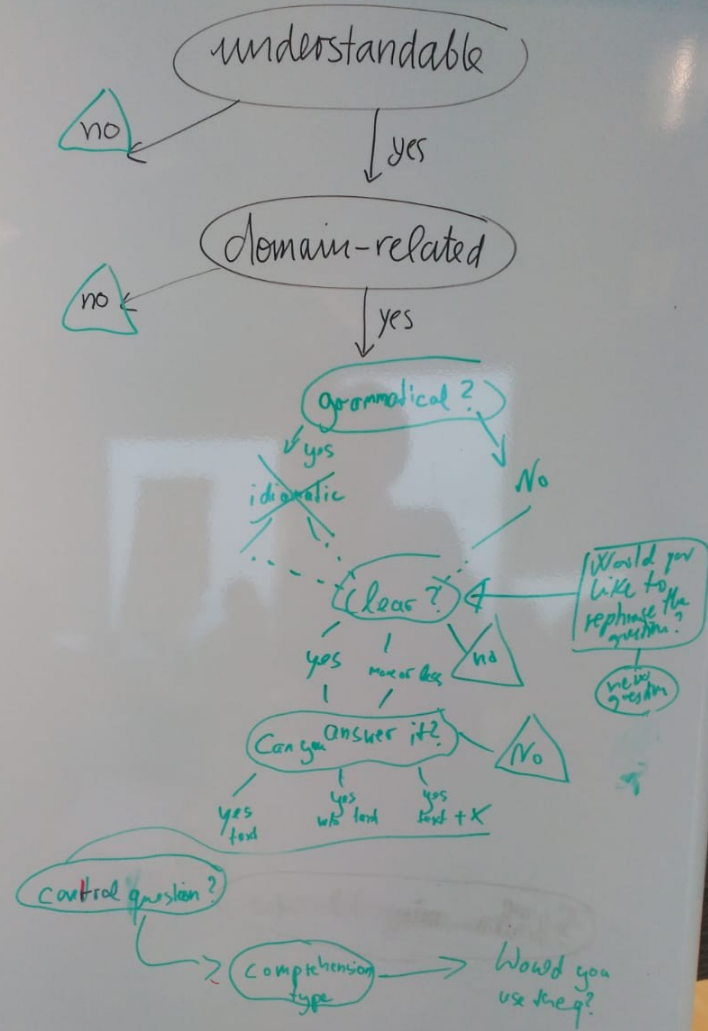 understandable
no
yes
domain-related
no
yes
grammatical?
yes
No
idiomatic
Would you
like to
rephrase the
question?
Clear?
new
question
yes
more or less
no
Can you answer it?
No
yes
text
yes
w/o text
yes
text + K
control question?
Comprehension
type
Would you
use the q?